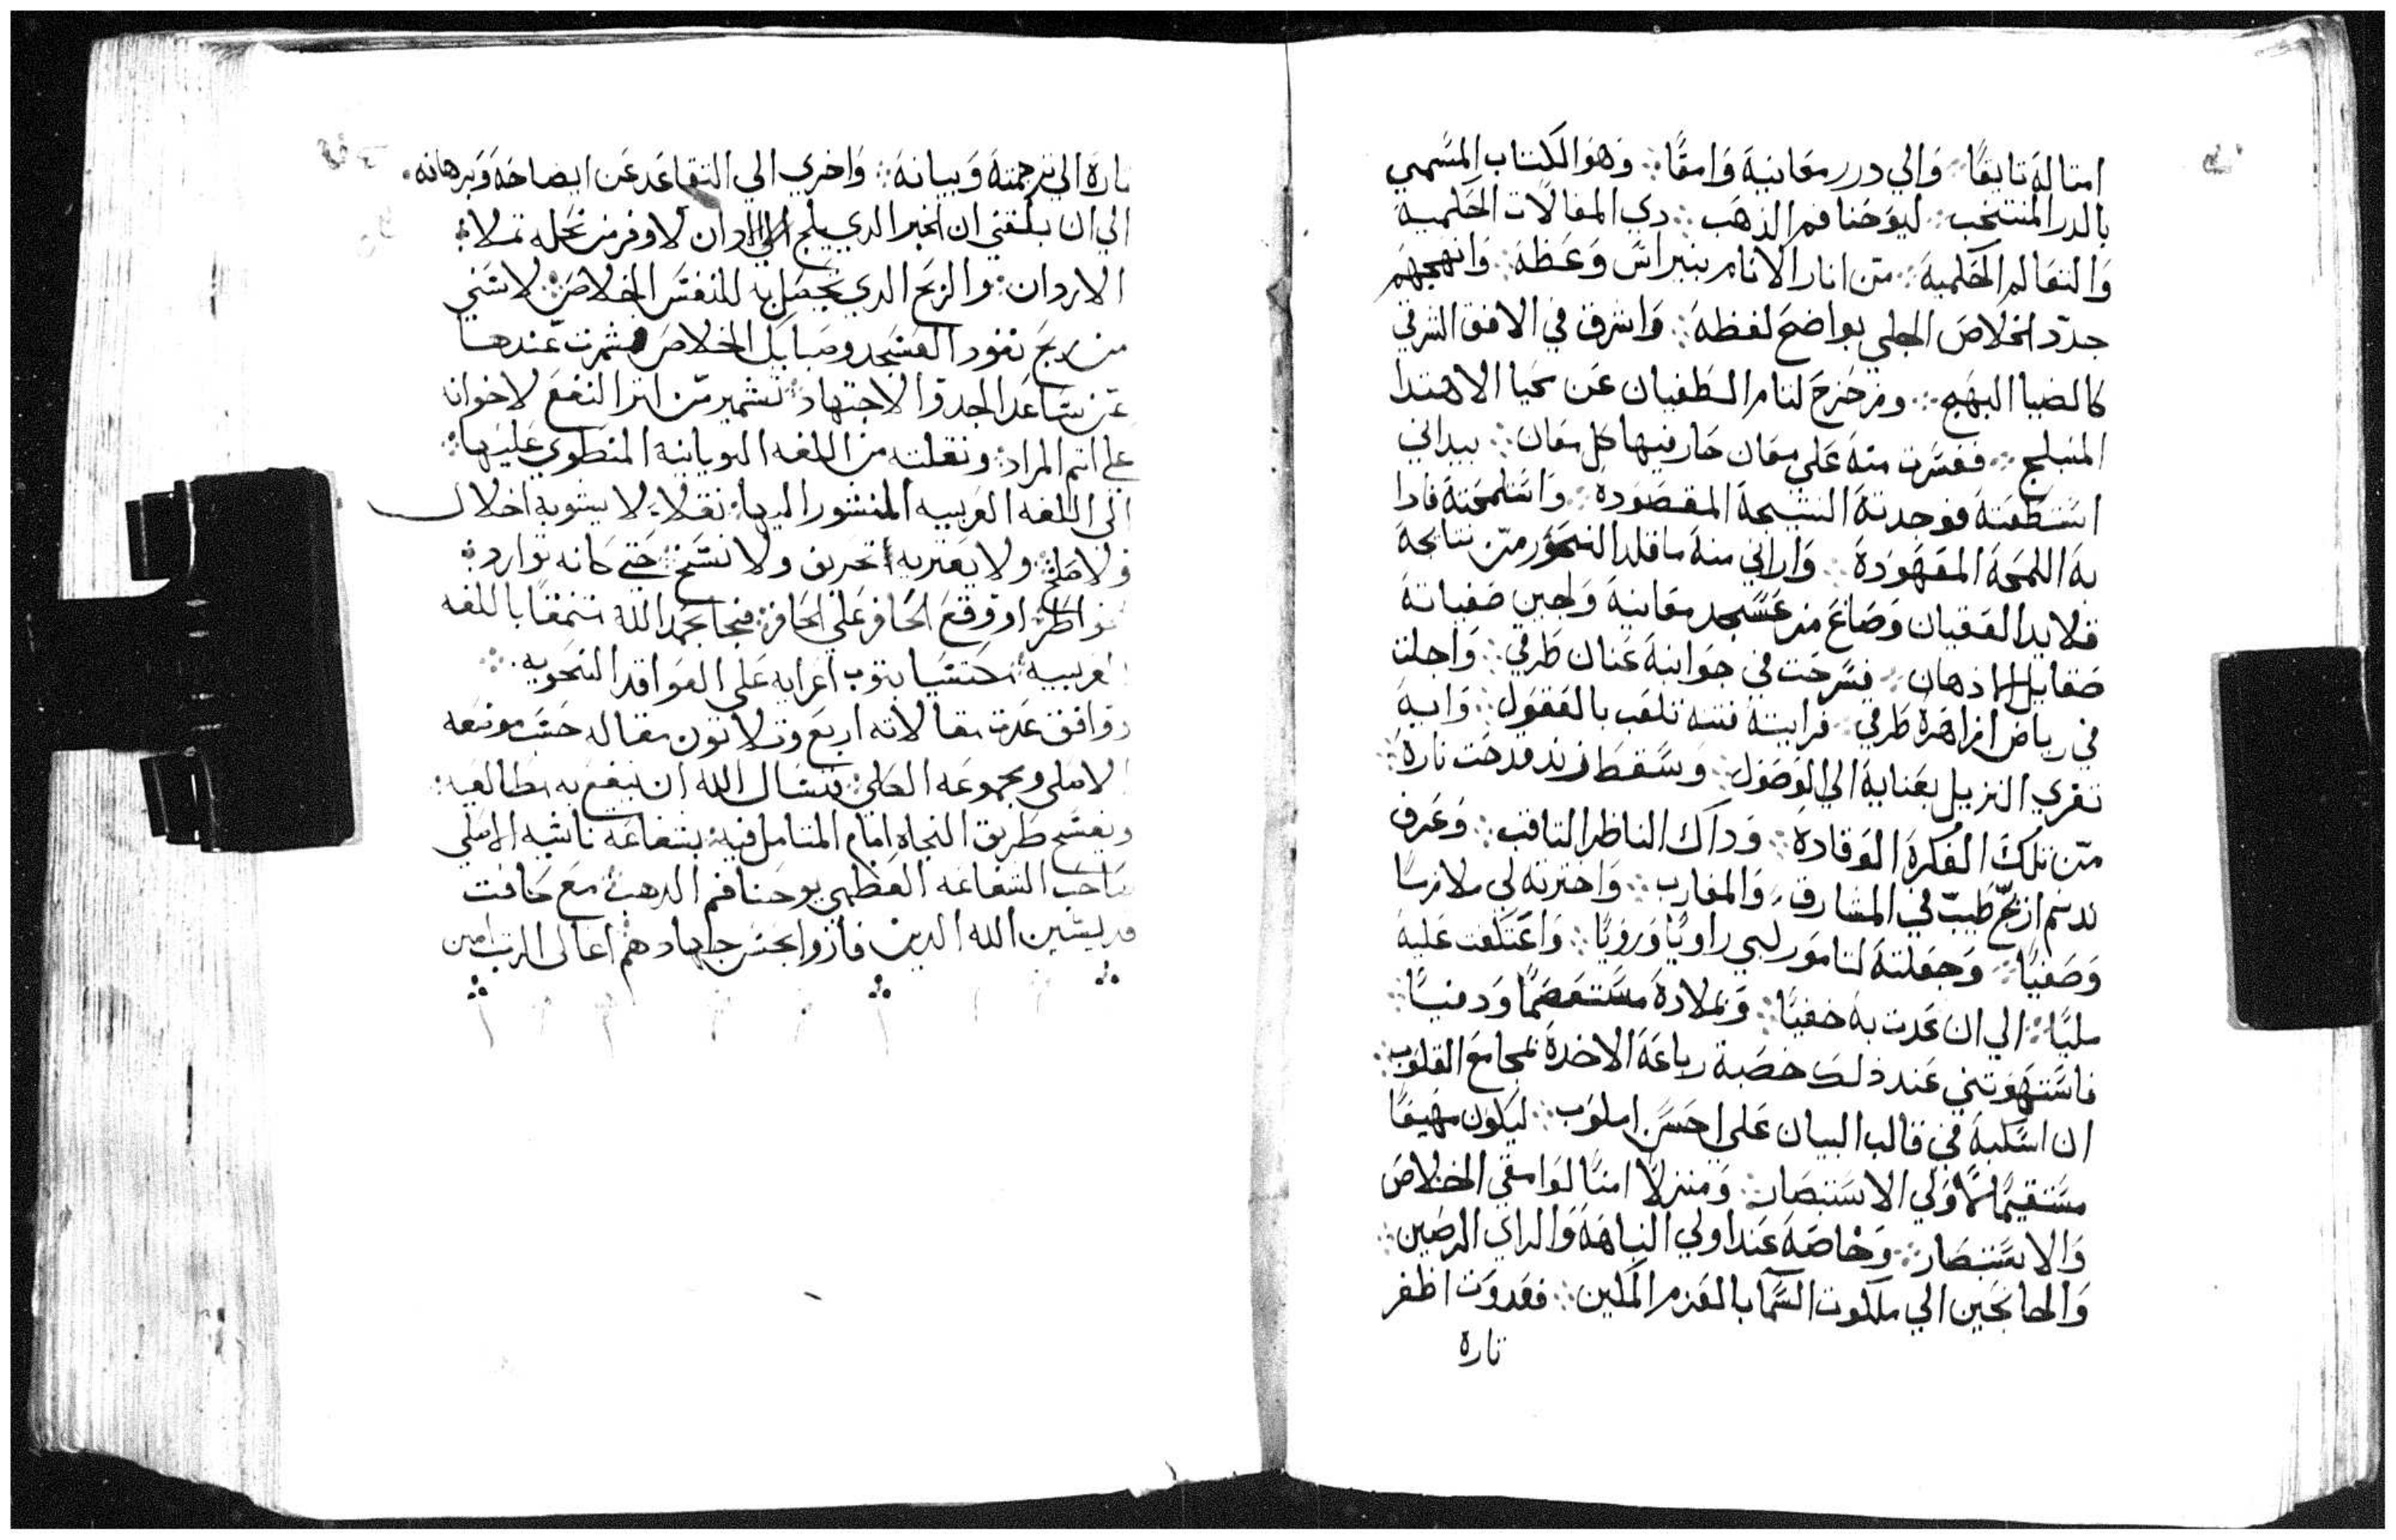 امتاله تايقًا ۞ والي درر معانيه وامقًا ۞ وهو الكتاب المسمي
بالدر المنتخب ۞ ليوحنا فم الذهب ۞ دي المقالات الحكمية
والتعاليم الحكمية ۞ من انار الانام بنبراس وعظه ۞ وانهجهم
جدد الخلاص الجلي بواضح لفظه ۞ واشرق في الافق الشرفي
كالضيا البهج ۞ وزحزح لثام الطغيان عن محيا الاهتدا
المنبلج ۞ فعثرت منه علي معان حار فيها كل معان ۞ بيد اني
استنطقته فوجدته النتيجة المقصودة ۞ واستلمحته فاذا
به اللمحة المعهودة ۞ واراني منه ما قلد النحور من نتايجه
قلايد العقيان وصاغ من عسجد معانيه ولجين صفياته
صقايل الاذهان ۞ فسرحت في جوانبه عنان طرفي ۞ واجلت
في رياض ازاهره طرفي ۞ فرايته فتنه تلعب بالعقول ۞ وايه
تغري النزيل بعناية الي الوصول ۞ وسقط زند قدحت ناره
من تلك الفكرة الوقادة ۞ وداك الناظر الثاقب ۞ وعرف
ند نم اريج طيب في المشارق والمغارب ۞ واخترته لي ملازمًا
وصفيًا ۞ وجعلته لتامور لبي راويًا ورويًا ۞ واعتكفت عليه
مليًا ۞ الي ان عدت به حفيًا ۞ وبملاده مستعصمًا ودفيًا ۞
فاستهوتني عند ذلك خصبة رباعه الاخدة بمجامع القلوب ۞
ان اسكبه في قالب البيان علي احسن اسلوب ۞ ليكون مهيعًا
مستقيمًا لاولي الاستبصار ۞ ومنزلاً امنًا لوامقي الخلاص
والانتصار ۞ وخاصة عند اولي النباهة والراي الرصين ۞
والجانحين الي ملكوت السما بالعزم المكين ۞ فغدوت اظفر
تاره
تارة الي ترجمته وبيانه ۞ واخري الي التقاعد عن ايضاحه وبرهانه ۞
الي ان بلغني ان الخبر الدي يلج الادان لاوفر من نحله تملا
الاردان ۞ والربح الدي يحصل به للنفس الخلاص ۞ لاسني
من ربح نقود العسجد وسبايك الخلاص فشمرت عندها
عن ساعد الجد والاجتهاد ۞ تشمير من اثر النفع لاخوانه
علي اتم المراد ۞ ونقلته من اللغه اليونانيه المنطوي عليها ۞
الي اللغه العربيه المنشور اليها ۞ نقلا لا يشوبه اخلال
ولا ۞ ولا يعتريه تحريف ولا نسخ ۞ حتي كانه توارد
خواطر ۞ او وقع الحافر علي الحافر ۞ فجا بحمد الله متنمقًا باللغه
العربيه ۞ محتشيا بثوب اعرابه علي القواعد النحويه ۞
ووافق عدت مقالاته اربع وتلاتون مقاله حسب موضعه
الاصلي ومجموعه الكلي ۞ فنسال الله ان ينفع به مطالعيه ۞
ويفسح طريق النجاه امام المتامل فيه ۞ بشفاعة ناشيه الاصلي
صاحب الشفاعه العظمي يوحنا فم الدهب ۞ مع كافت
قديسين الله الدين فازوا بحسن جهادهم اعالي الرتب امين